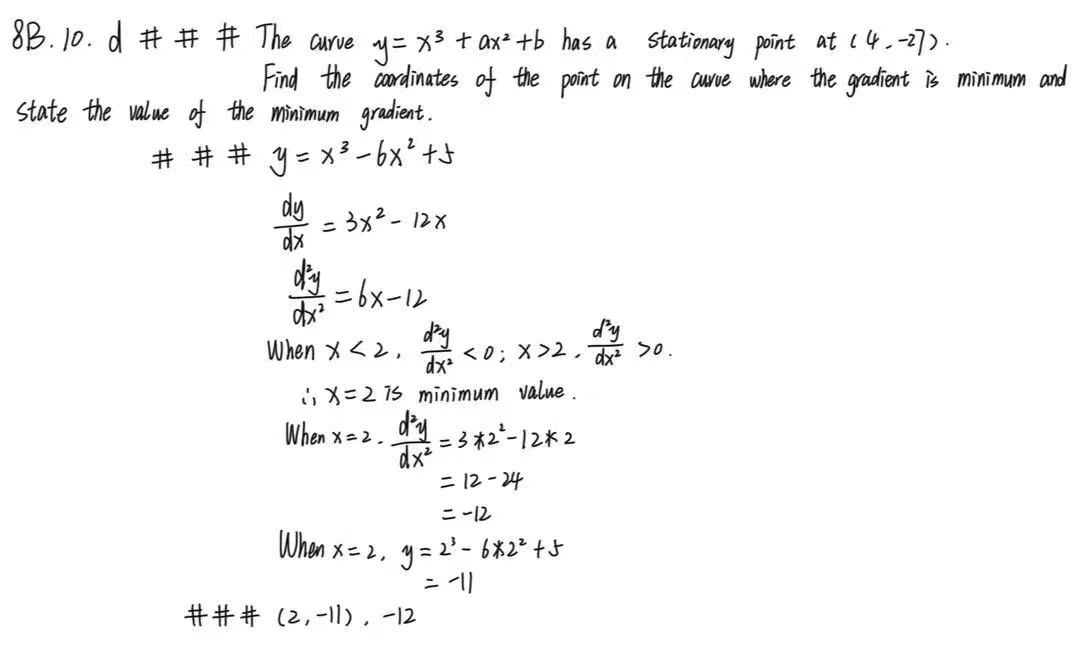 8B.10. d # # # The curve y = x³ + ax² + b has a stationary point at (4, -27).
Find the coordinates of the point on the curve where the gradient is minimum and
state the value of the minimum gradient.
# # # y = x³ - 6x² + 5
dy/dx = 3x² - 12x
d²y/dx² = 6x - 12
When x < 2, d²y/dx² < 0; x > 2, d²y/dx² > 0.
∴ x = 2 is minimum value.
When x = 2, d²y/dx² = 3*2² - 12*2
= 12 - 24
= -12
When x = 2, y = 2³ - 6*2² + 5
= -11
### (2, -11), -12